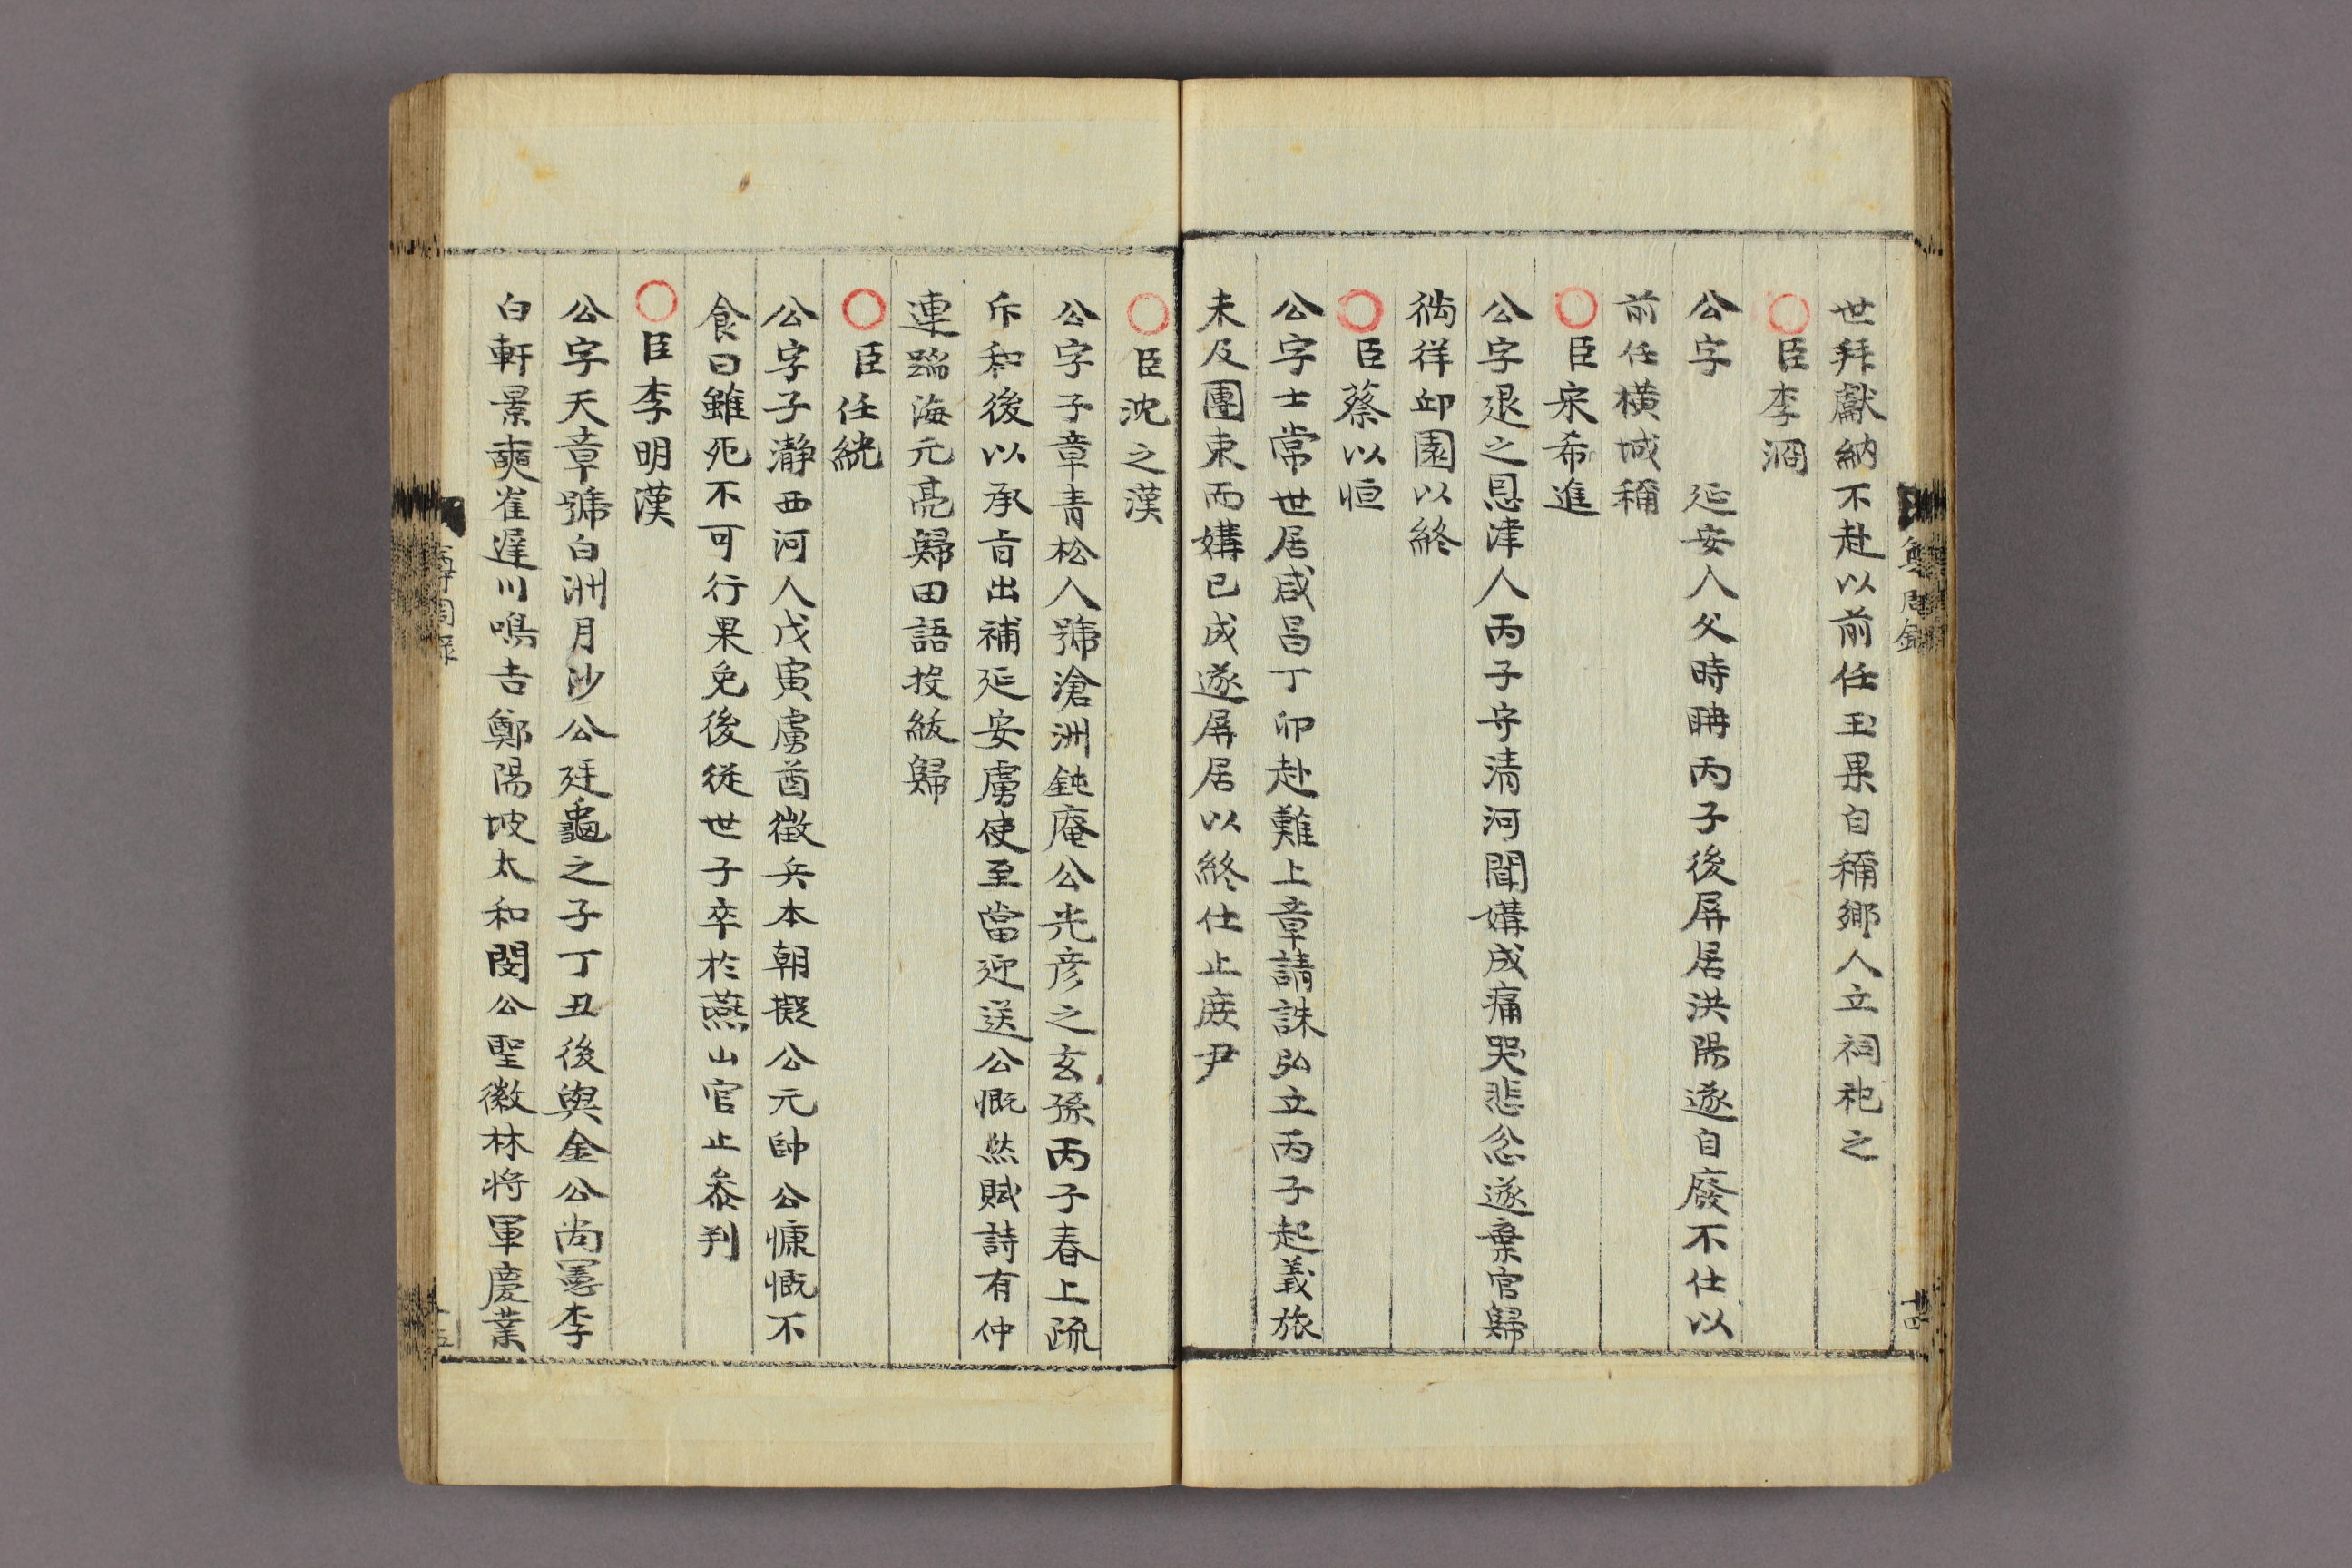 世拜獻納不赴以前任玉果自稱鄉人立祠祀之
○臣李浻
公字　　延安人父時聃丙子後屏居洪陽遂自廢不仕以
前任橫城稱
○臣宋希進
公字退之恩津人丙子守清河聞媾成痛哭悲忿遂棄官歸
徜徉邱園以終
○臣蔡以恒
公字士常世居咸昌丁卯赴難上章請誅弘立丙子起義旅
未及團束而媾已成遂屏居以終仕止庶尹
十四
○臣沈之漢
公字子章青松人號滄洲鈍庵公光彦之玄孫丙子春上疏
斥和後以承旨出補延安虜使至當迎送公慨然賦詩有仲
連蹈海元亮歸田語投紱歸
○臣任絖
公字子瀞西河人戊寅虜酋徵兵本朝擬公元帥公慷慨不
食曰雖死不可行果免後從世子卒於燕山官止叅判
○臣李明漢
公字天章號白洲月沙公廷龜之子丁丑後與金公尚憲李
白軒景奭崔遲川鳴吉鄭陽坡太和閔公聖徽林将軍慶業
尊周錄
十五